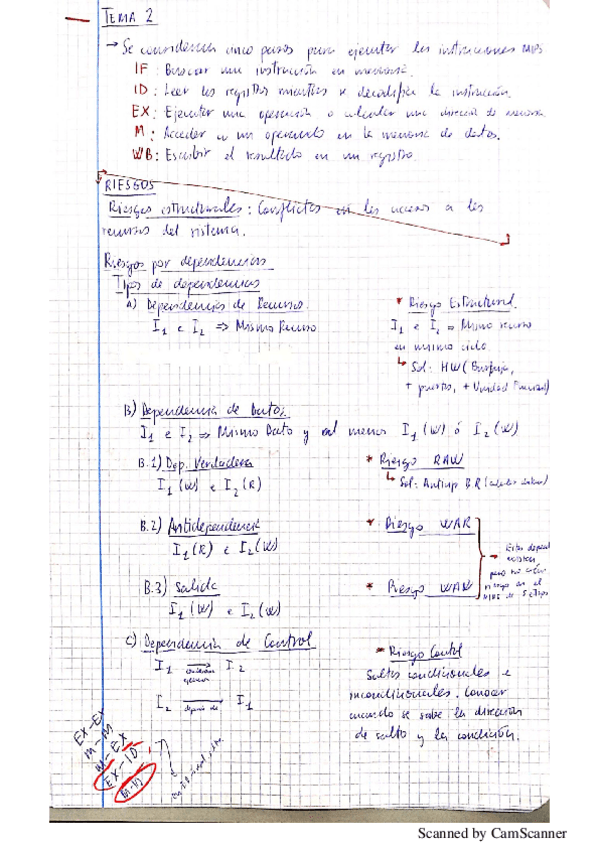 TEMA 2
→ Se consideran cinco pasos para ejecutar las instrucciones MIPS
IF : Buscar una instrucción en memoria.
ID : Leer los registros mientras se decodifica la instrucción.
EX : Ejecutar una operación o calcular una dirección de memoria
M : Acceder a un operando en la memoria de datos.
WB : Escribir el resultado en un registro.
RIESGOS
Riesgos estructurales : Conflictos en los accesos a los
recursos del sistema.
Riesgos por dependencias
Tipos de dependencias
A) Dependencias de Recurso
I1 e I2 ⇒ Mismo Recurso
* Riesgo Estructural
I1 e I2 ⇒ Mismo recurso
en mismo ciclo
↳ Sol: HW (Burbuja,
+ puertos, + Unidad Funcional)
B) Dependencia de Datos
I1 e I2 ⇒ Mismo Dato y al menos I1 (W) ó I2 (W)
B.1) Dep. Verdadera
I1 (W) e I2 (R)
* Riesgo RAW
↳ Sol: Anticip BR
B.2) Antidependencia
I1 (R) e I2 (W)
* Riesgo WAR
B.3) Salida
I1 (W) e I2 (W)
* Riesgo WAW
→ Estas depend
existen
pero no crean
riesgo en el
MIPS de 5 etapas
C) Dependencia de Control
I1 → I2
I2 depende de I1
* Riesgo Control
Saltos condicionales e
incondicionales. Conocer
cuando se sabe la dirección
de salto y la condición.
EX-EX
M-M
M-EX
EX-ID
M-ID
Scanned by CamScanner